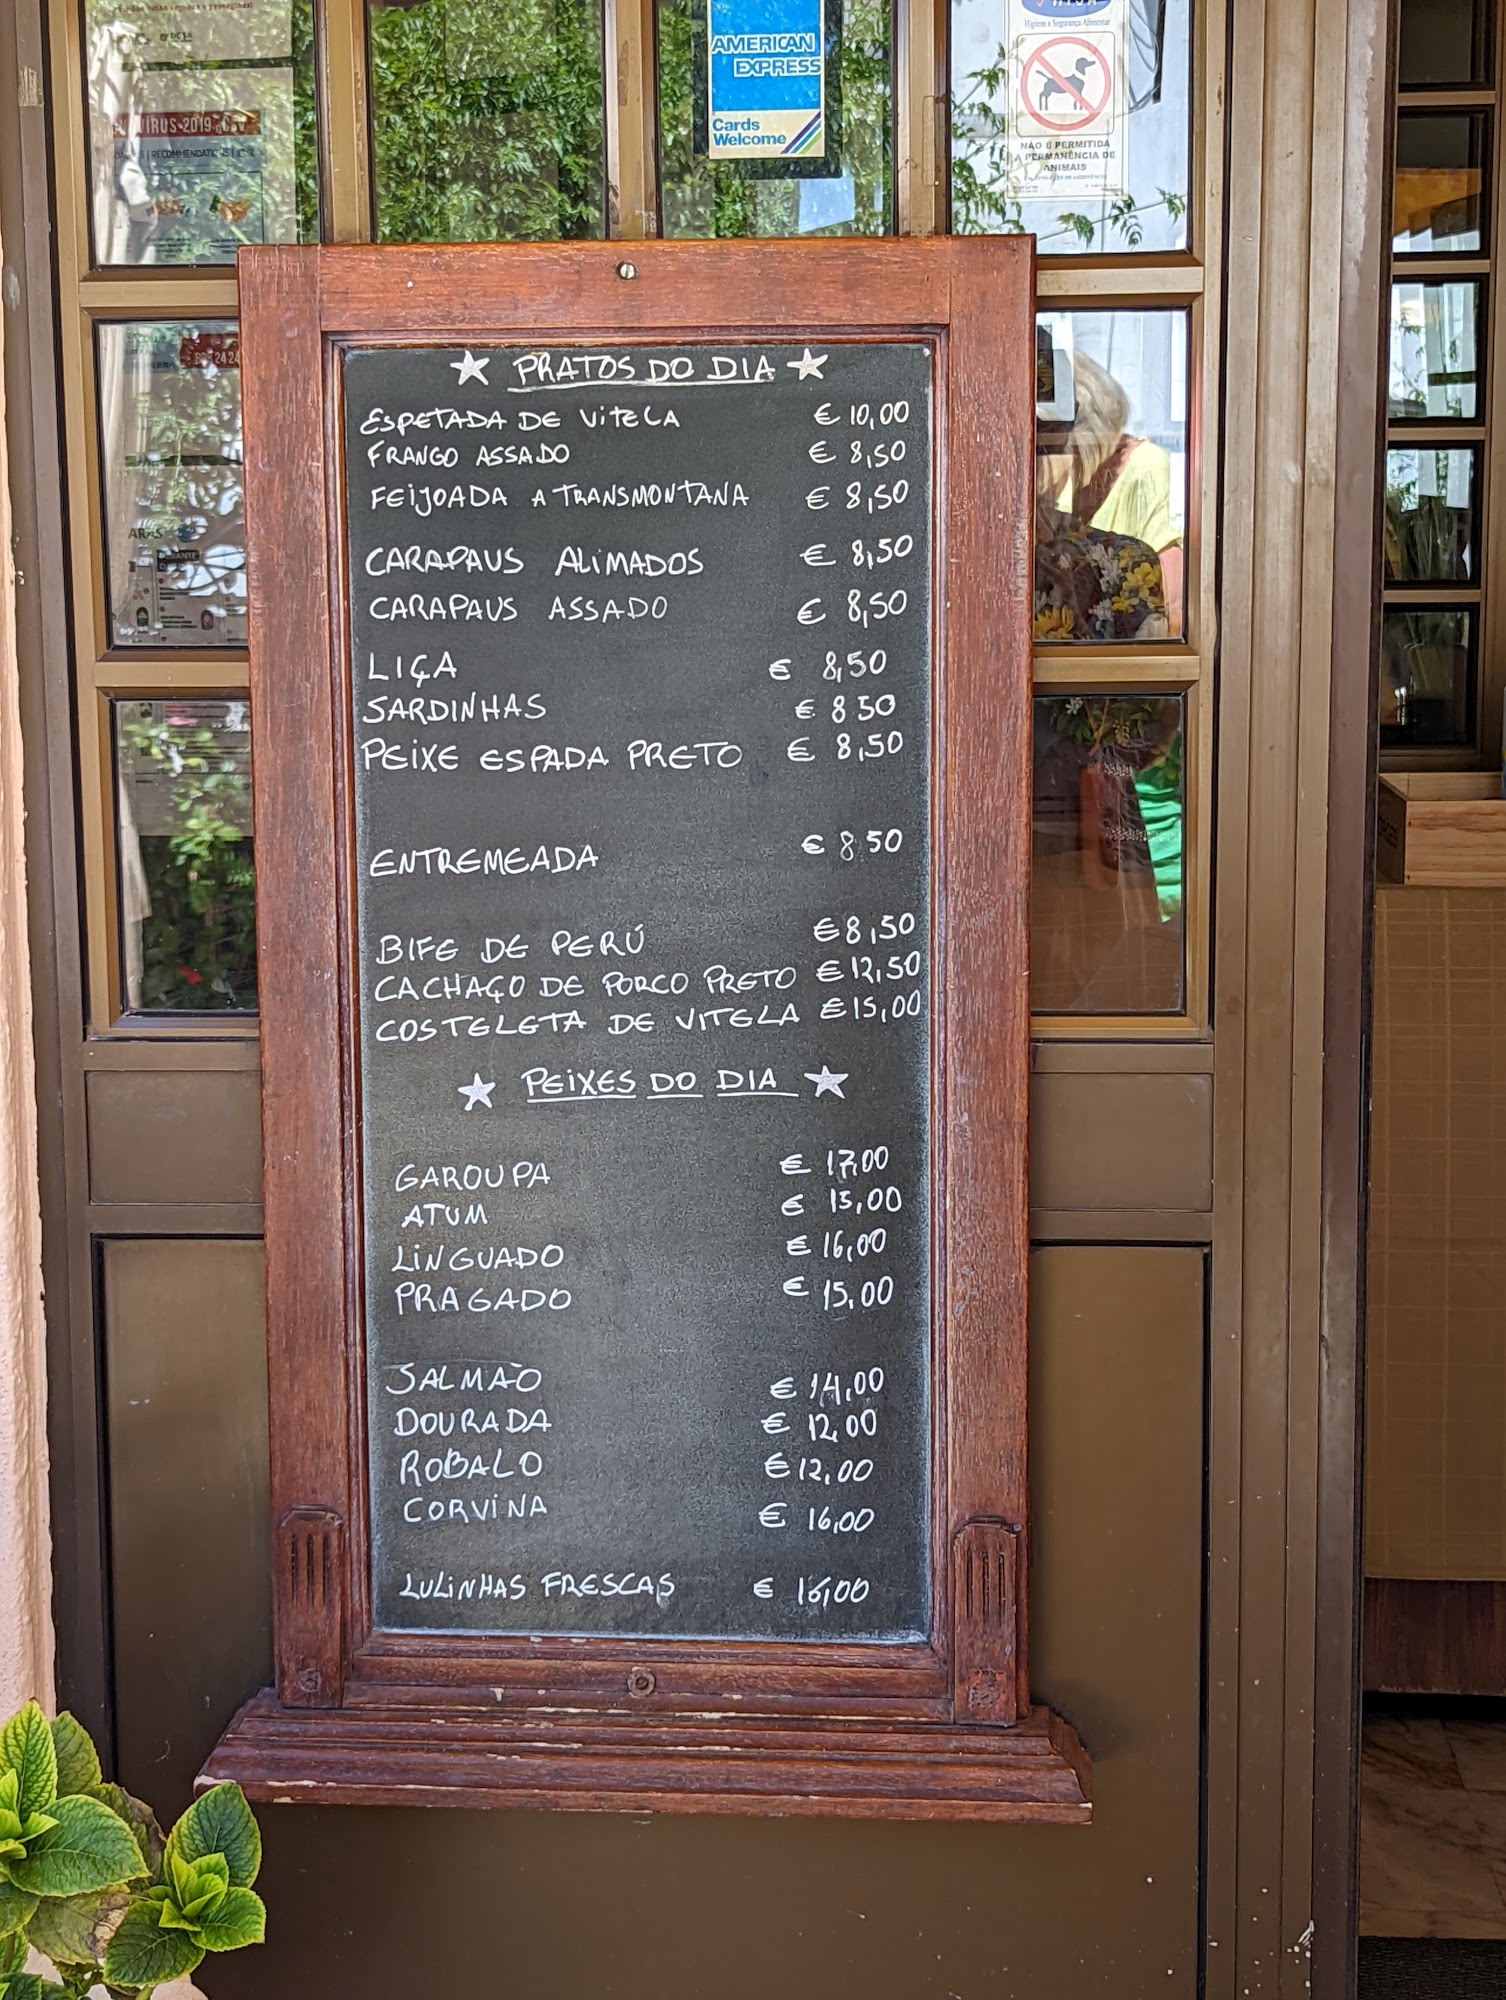 AMERICAN
EXPRESS
Cards
Welcome
Higiene e Segurança Alimentar
NÃO É PERMITIDA
A PERMANÊNCIA DE
ANIMAIS
RECOMMENDATIONS
PRATOS DO DIA
ESPETADA DE VITELA € 10,00
FRANGO ASSADO € 8,50
FEIJOADA A TRANSMONTANA € 8,50
CARAPAUS ALIMADOS € 8,50
CARAPAUS ASSADO € 8,50
LIÇA € 8,50
SARDINHAS € 8 50
PEIXE ESPADA PRETO € 8,50
ENTREMEADA € 8 50
BIFE DE PERÚ € 8,50
CACHAÇO DE PORCO PRETO € 12,50
COSTELETA DE VITELA € 15,00
PEIXES DO DIA
GAROUPA € 17,00
ATUM € 15,00
LINGUADO € 16,00
PRAGADO € 15,00
SALMÃO € 14,00
DOURADA € 12,00
ROBALO € 12,00
CORVINA € 16,00
LULINHAS FRESCAS € 16,00